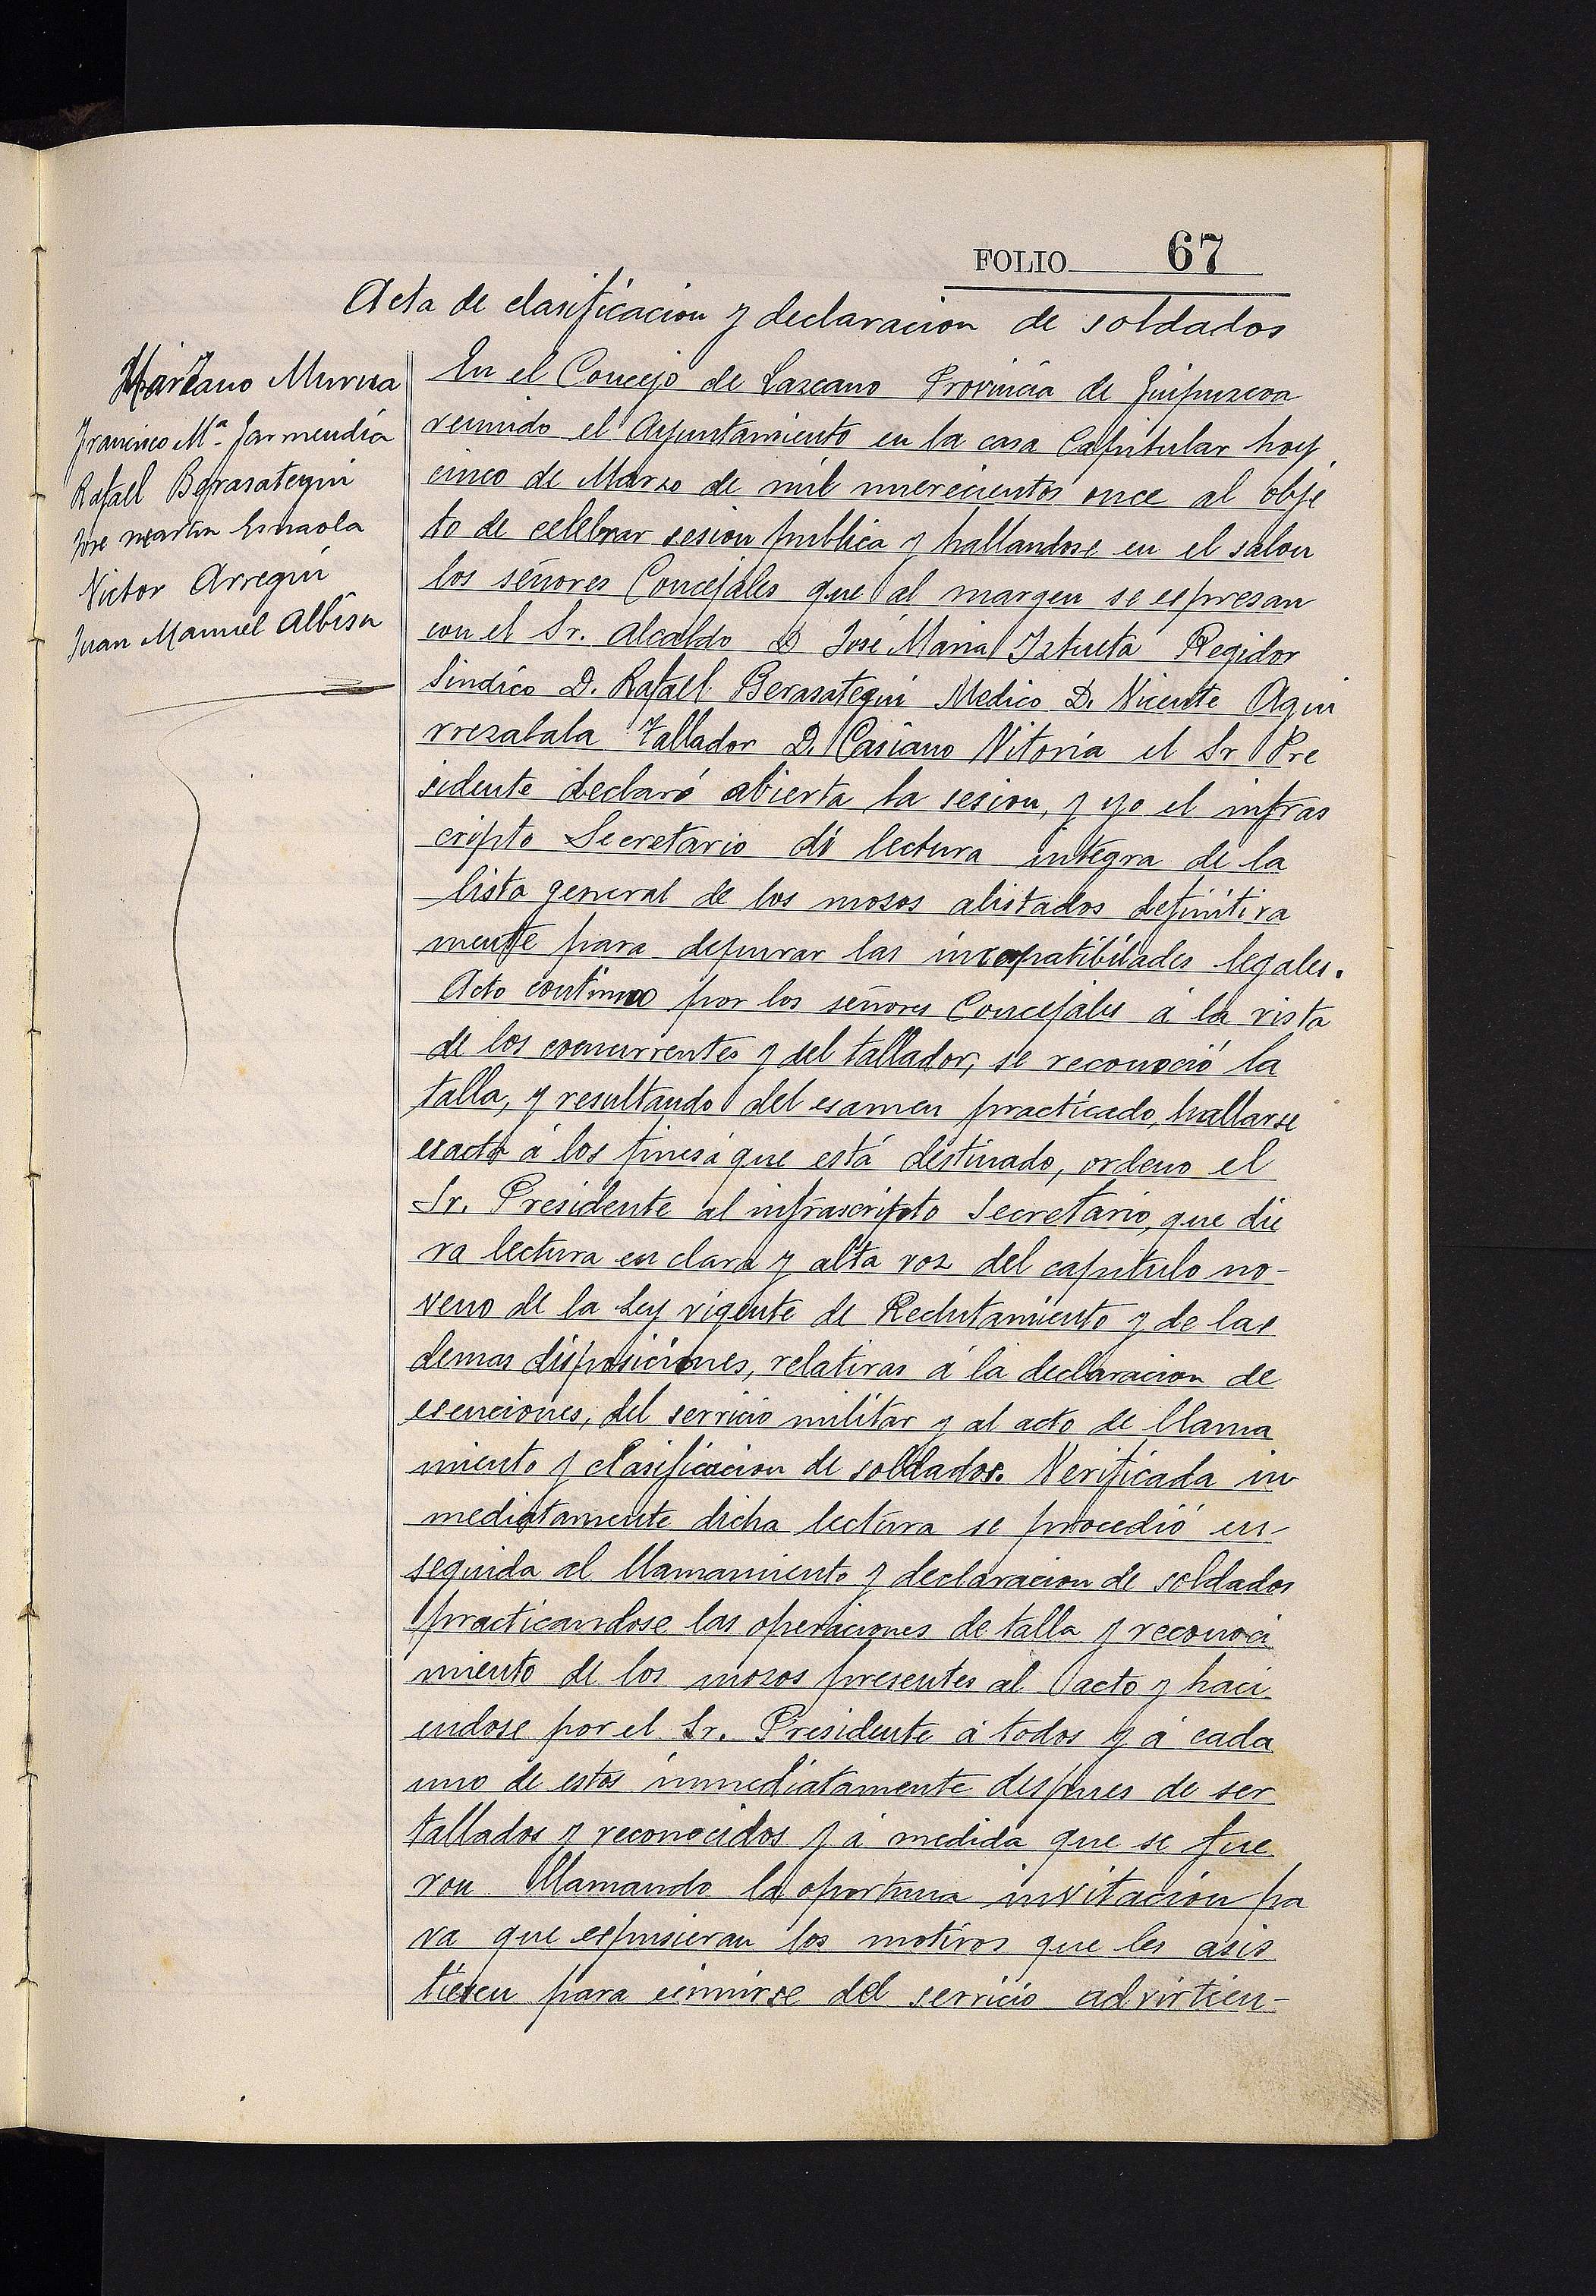 FOLIO 67
Acta de clasificacion y declaracion de soldados
Mariano Murua
Francisco Mª. Garmendia
Rafael Berasategui
Jose Martin Esnaola
Victor Arregui
Juan Manuel Albisu
En el Concejo de Lazcano Provincia de Guipuzcoa
reunido el Ayuntamiento en la casa Capitular hoy
cinco de Marzo de mil nuevecientos once al obje
to de celebrar sesion publica y hallandose en el salon
los señores Concejales que al margen se espresan
con el Sr. Alcalde D José Maria Iztueta Regidor
Sindico D. Rafael Berasategui Medico D. Vicente Agui
rrezabala Tallador D. Casiano Vitoria el Sr Pre
sidente declaró abierta la sesion, y yo el infras
cripto Secretario di lectura integra de la
lista general de los mosos alistados definitiva
mente para depurar las incapatibilades legales.
Acto continuo por los señores Concejales á la vista
de los concurrentes y del tallador, se reconoció la
talla, y resultando del esamen practicado, hallarse
esacta á los fines á que está destinado, ordeno el
Sr. Presidente al infrascripto Secretario, que die
ra lectura en clara y alta voz del capitulo no-
veno de la Ley vigente de Reclutamiento y de las
demas disposiciones, relativas á la declaracion de
esenciones, del servicio militar y al acto de llama
miento y clasificacion de soldados. Verificada in
mediatamente dicha lectura se procedió en-
seguida al llamamiento y declaracion de soldados
practicandose las operaciones de talla y reconoci
miento de los mozos presentes al acto y haci
endose por el Sr. Presidente á todos y á cada
uno de estos inmediatamente despues de ser
tallados y reconocidos y á medida que se fue
ron llamando la oportuna invitacion pa
ra que espusieran los motivos que les asis
tiesen para eximirse del servicio advirtien-